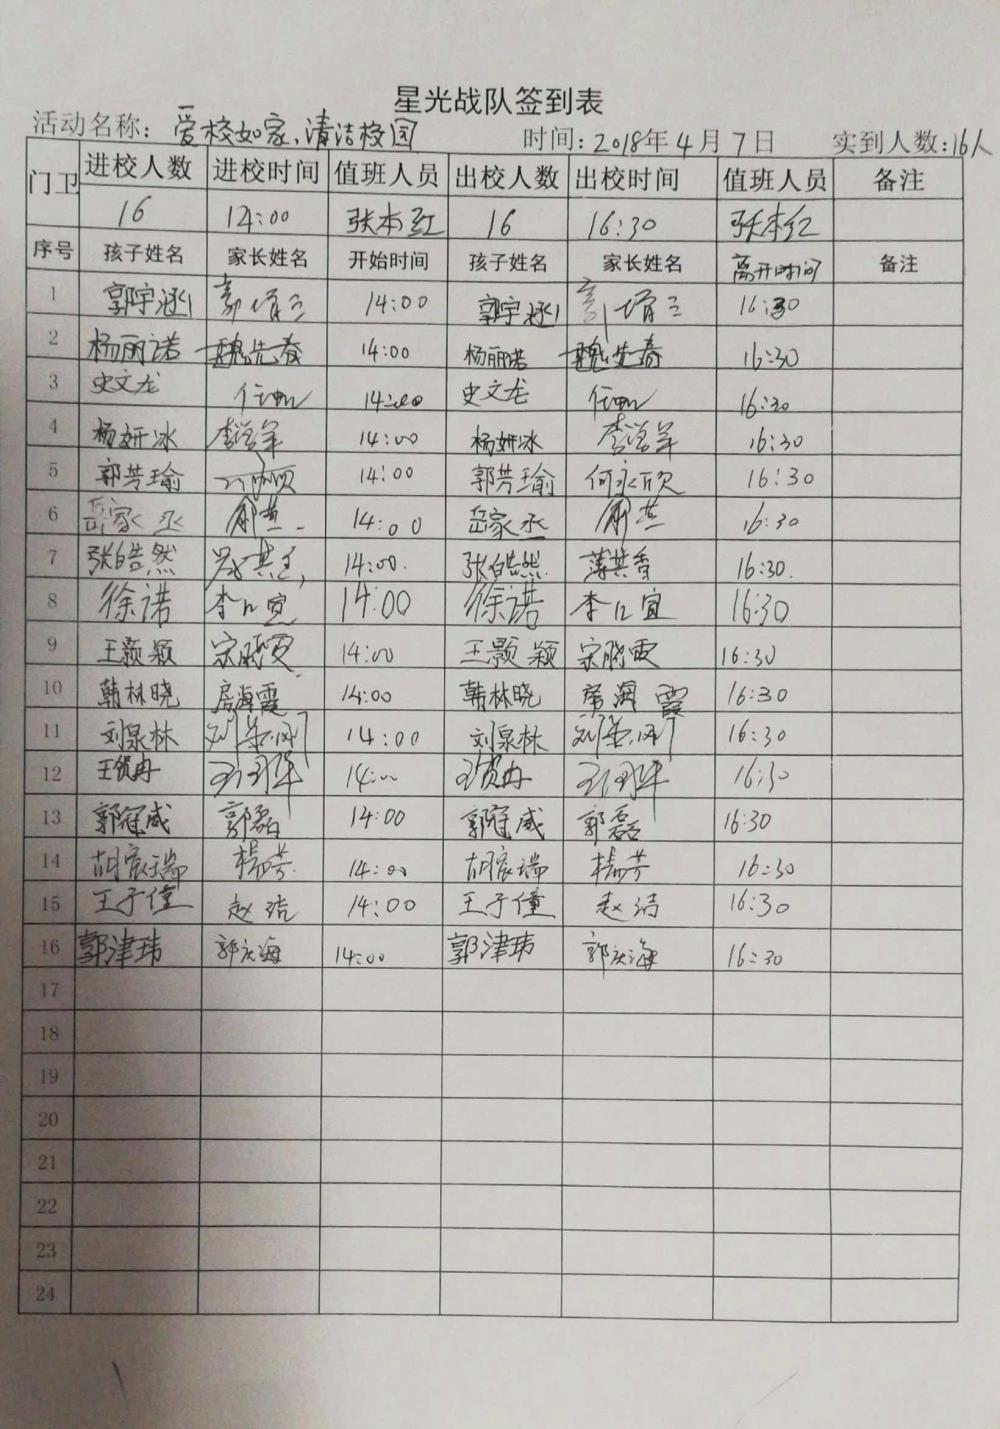 星光战队签到表
活动名称: 爱校如家,清洁校园 时间: 2018年4月7日 实到人数:16人
门卫 进校人数 进校时间 值班人员 出校人数 出校时间 值班人员 备注
16 14:00 张本红 16 16:30 张本红
序号 孩子姓名 家长姓名 开始时间 孩子姓名 家长姓名 离开时间 备注
1 郭宇涵 14:00 郭宇涵 16:30
2 杨丽诺 魏先春 14:00 杨丽诺 魏先春 16:30
3 史文龙 14:00 史文龙 16:30
4 杨妍冰 14:00 杨妍冰 16:30
5 郭芳瑜 14:00 郭芳瑜 何永欣 16:30
6 岳家丞 14:00 岳家丞 16:30
7 张皓然 14:00. 张皓然. 薄其香 16:30.
8 徐诺 14:00 徐诺 16:30
9 王颢颖 宋晓霞 14:00 王颢颖 宋晓霞 16:30
10 韩林晓 房海霞 14:00 韩林晓 房海霞 16:30
11 刘泉林 14:00 刘泉林 16:30
12 14:00 16:30
13 郭冠威 郭磊 14:00 郭冠威 郭磊 16:30
14 胡宸瑞 杨芳 14:00 胡宸瑞 杨芳 16:30
15 王子僮 赵洁 14:00 王子僮 赵洁 16:30
16 郭津玮 郭庆海 14:00 郭津玮 郭庆海 16:30
17
18
19
20
21
22
23
24